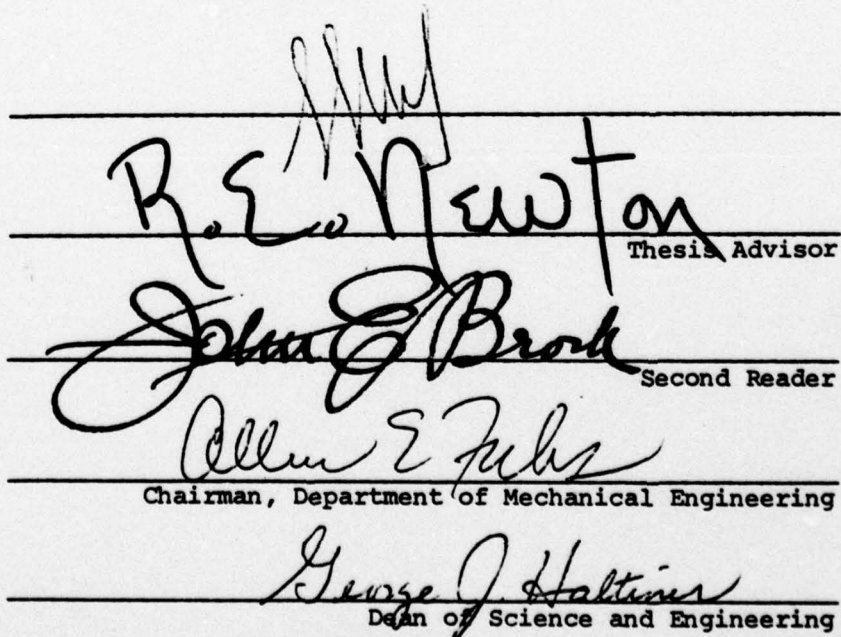 R. E. Newton
Thesis Advisor
John E Brock
Second Reader
Allen E Fuhs
Chairman, Department of Mechanical Engineering
George J. Haltiner
Dean of Science and Engineering